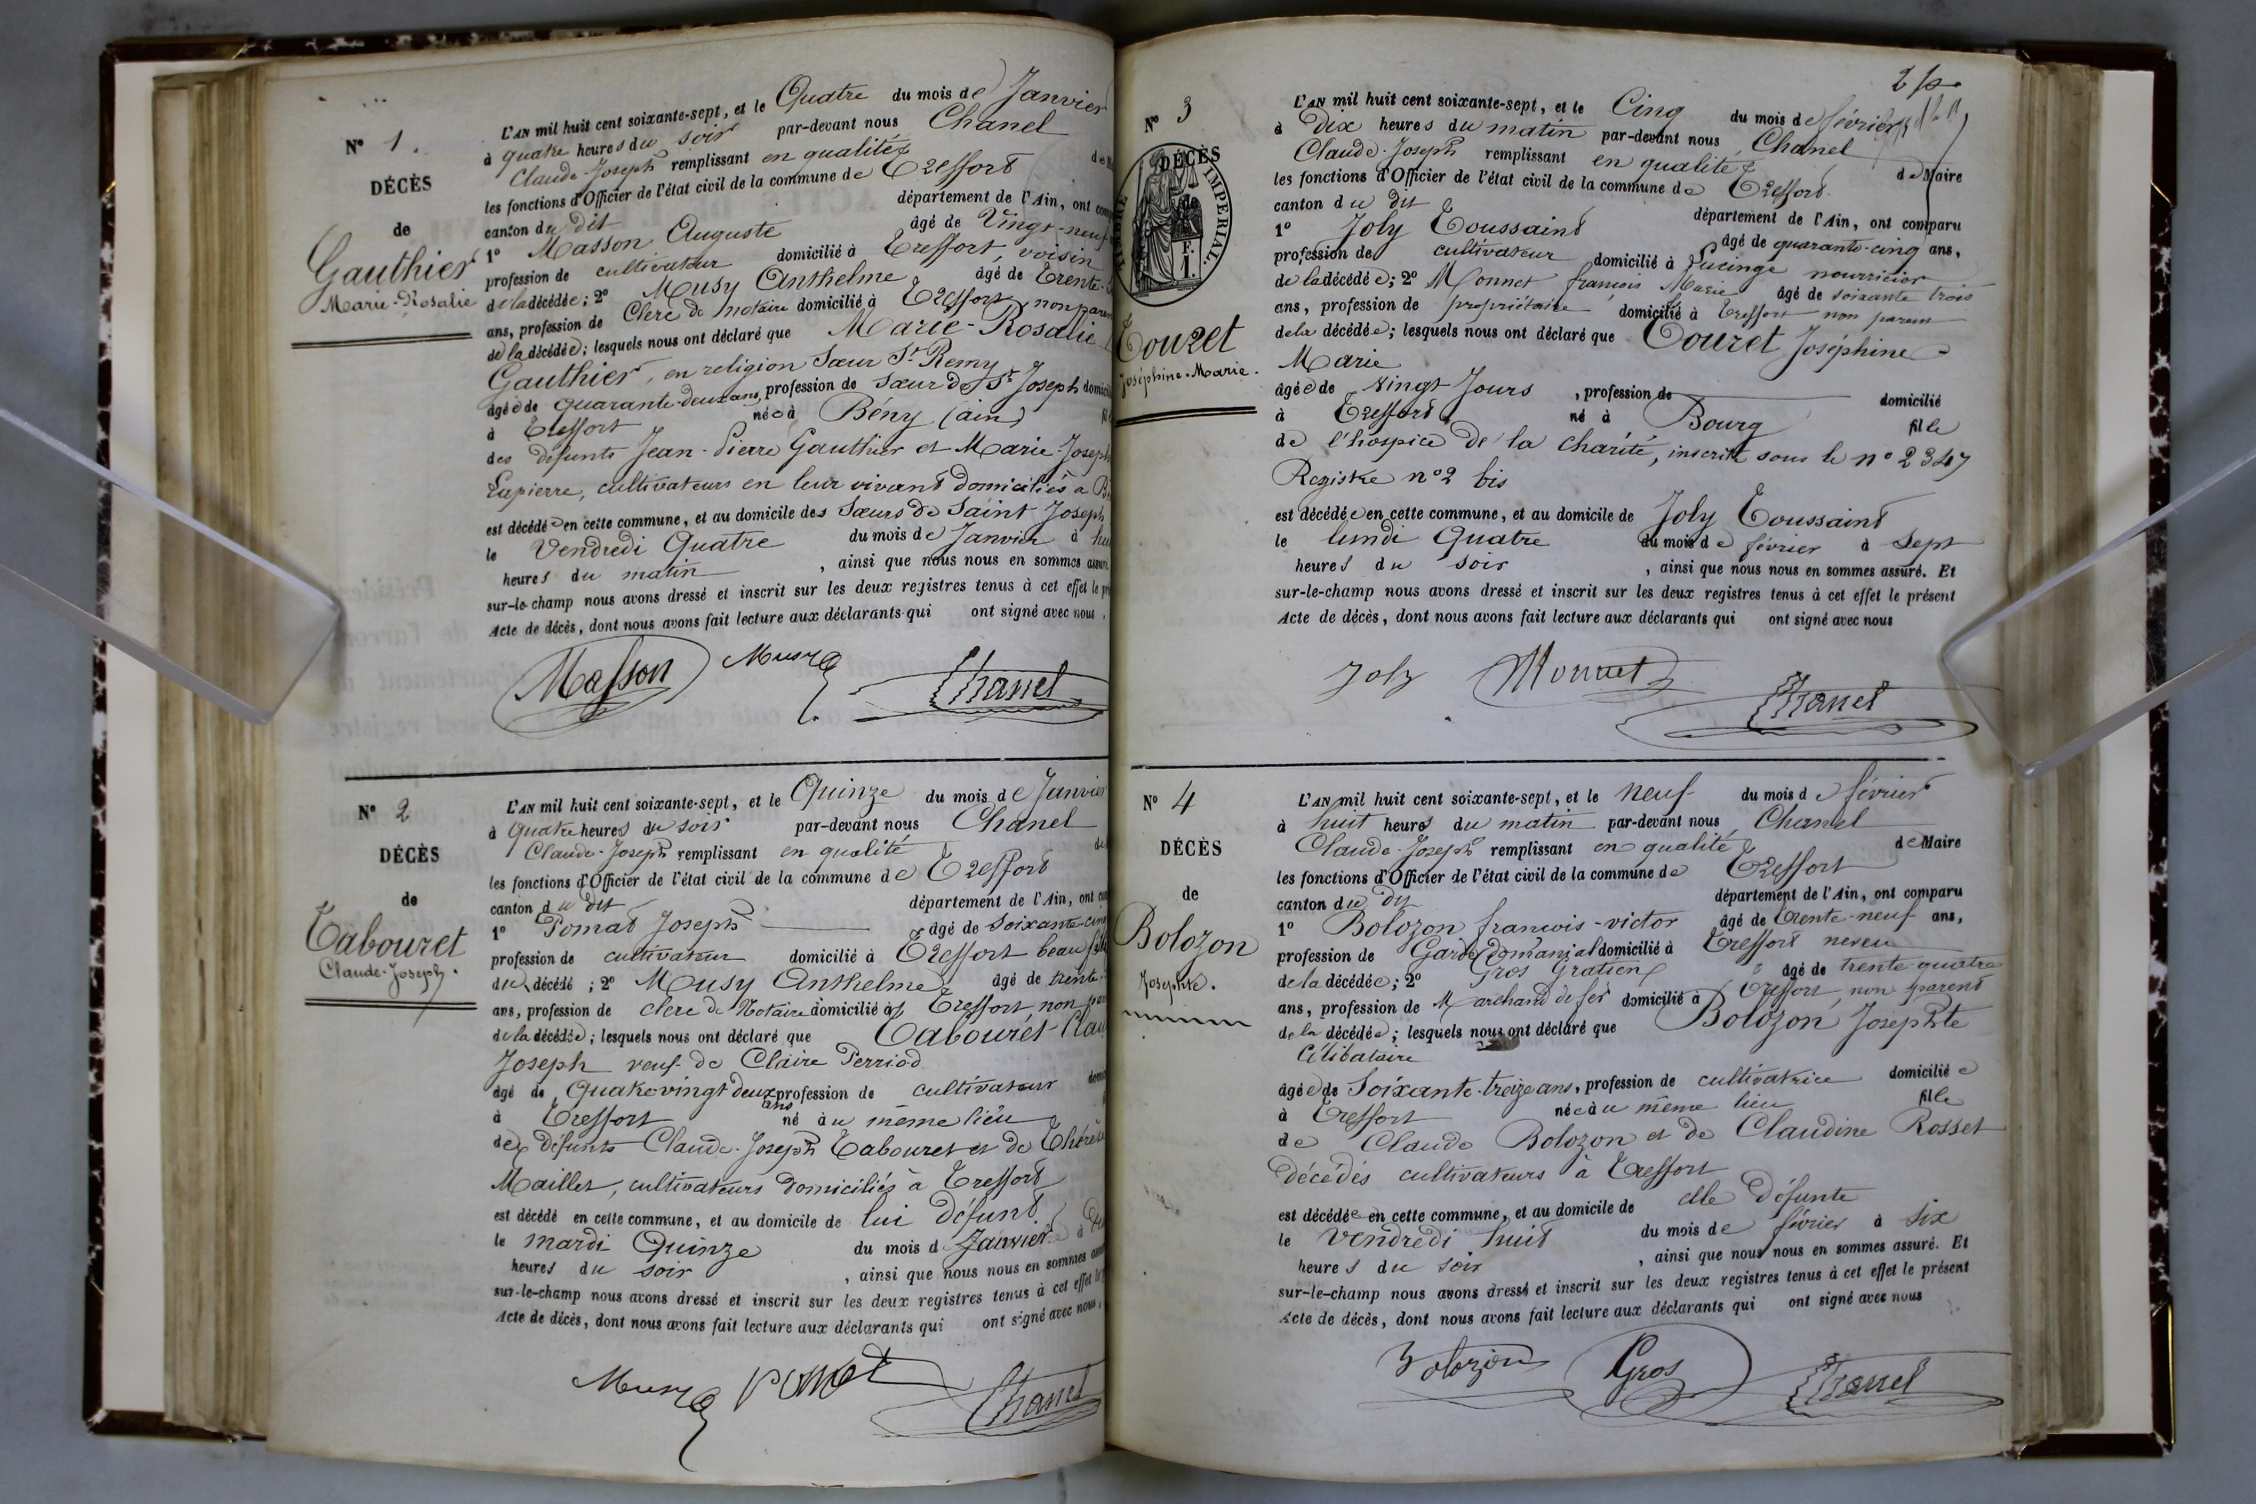 N° 1.
DÉCÈS
de
Gauthier
Marie-Rosalie
L'AN mil huit cent soixante-sept, et le Quatre du mois de Janvier
à quatre heures du soir par-devant nous Chanel
Claude-Joseph remplissant en qualité de
les fonctions d'Officier de l'état civil de la commune de Treffort
canton du dit département de l'Ain, ont
1° Masson Auguste âgé de Vingt-neuf
profession de cultivateur domicilié à Treffort, voisin
de la décédée; 2° Musy Anthelme âgé de Trente
ans, profession de Clerc de notaire domicilié à Treffort, non parent
de la décédée; lesquels nous ont déclaré que Marie-Rosalie
Gauthier, en religion Sœur St Remy
âgée de quarante-deux ans, profession de Sœur de St Joseph
à Treffort née à Bény (ain)
des défunts Jean-Pierre Gauthier et Marie-Joseph
Lapierre, cultivateurs en leur vivant domiciliés à
est décédée en cette commune, et au domicile des Sœurs de Saint Joseph
le Vendredi Quatre du mois de Janvier à
heures du matin, ainsi que nous nous en sommes
sur-le-champ nous avons dressé et inscrit sur les deux registres tenus à cet effet le
Acte de décès, dont nous avons fait lecture aux déclarants qui ont signé avec nous.
Masson Musy Chanel
N° 2
DÉCÈS
de
Tabouret
Claude-Joseph.
L'AN mil huit cent soixante-sept, et le Quinze du mois de Janvier
à quatre heures du soir par-devant nous Chanel
Claude-Joseph remplissant en qualité de
les fonctions d'Officier de l'état civil de la commune de Treffort
canton du dit département de l'Ain, ont
1° Pomat Joseph âgé de soixante-cinq
profession de cultivateur domicilié à Treffort beau
du décédé; 2° Musy Anthelme âgé de trente
ans, profession de clerc de Notaire domicilié à Treffort, non
de la décédée; lesquels nous ont déclaré que Tabouret
Joseph veuf de Claire Perriod
âgé de Quatrevingt deux ans profession de cultivateur
à Treffort né au même lieu
des défunts Claude-Joseph Tabouret et de Thérèse
Maillet, cultivateurs domiciliés à Treffort
est décédé en cette commune, et au domicile de lui défunt
le mardi Quinze du mois de Janvier à
heures du soir, ainsi que nous nous en sommes
sur-le-champ nous avons dressé et inscrit sur les deux registres tenus à cet effet
Acte de décès, dont nous avons fait lecture aux déclarants qui ont signé avec nous.
Musy Pomat Chanel
2
N° 3
DÉCÈS
TIMBRE IMPERIAL.
F.
1.
Touret
Joséphine-Marie.
L'AN mil huit cent soixante-sept, et le Cinq du mois de février
à Dix heures du matin par-devant nous Chanel
Claude-Joseph remplissant en qualité de Maire
les fonctions d'Officier de l'état civil de la commune de Treffort
canton du dit département de l'Ain, ont comparu
1° Joly Toussaint âgé de quarante-cinq ans,
profession de cultivateur domicilié à Lucinge nourricier
de la décédée; 2° Monnet françois Marie âgé de soixante trois
ans, profession de propriétaire domicilié à Treffort non parent
de la décédée; lesquels nous ont déclaré que Touret Joséphine
Marie
âgée de Vingt Jours, profession de domicilié
à Treffort né à Bourg fille
de l'hospice de la charité, inscrite sous le n° 2347
Registre n° 2 bis
est décédée en cette commune, et au domicile de Joly Toussaint
le lundi Quatre du mois de février à sept
heures du soir, ainsi que nous nous en sommes assuré. Et
sur-le-champ nous avons dressé et inscrit sur les deux registres tenus à cet effet le présent
Acte de décès, dont nous avons fait lecture aux déclarants qui ont signé avec nous
Joly Monnet Chanel
N° 4
DÉCÈS
de
Bolozon
Josephte.
L'AN mil huit cent soixante-sept, et le neuf du mois de février
à huit heures du matin par-devant nous Chanel
Claude-Joseph remplissant en qualité de Maire
les fonctions d'Officier de l'état civil de la commune de Treffort
canton du dit département de l'Ain, ont comparu
1° Bolozon francois-victor âgé de trente-neuf ans,
profession de Garde domanial domicilié à Treffort neveu
de la décédée; 2° Gros Gratien âgé de trente-quatre
ans, profession de Marchand de fer domicilié à Treffort, non parent
de la décédée; lesquels nous ont déclaré que Bolozon Josephte
Célibataire
âgée de Soixante-treize ans, profession de cultivatrice domiciliée
à Treffort née au même lieu fille
de Claude Bolozon et de Claudine Rosset
décédés cultivateurs à Treffort
est décédée en cette commune, et au domicile de elle défunte
le Vendredi huit du mois de février à six
heures du soir, ainsi que nous nous en sommes assuré. Et
sur-le-champ nous avons dressé et inscrit sur les deux registres tenus à cet effet le présent
Acte de décès, dont nous avons fait lecture aux déclarants qui ont signé avec nous
Bolozon Gros Chanel